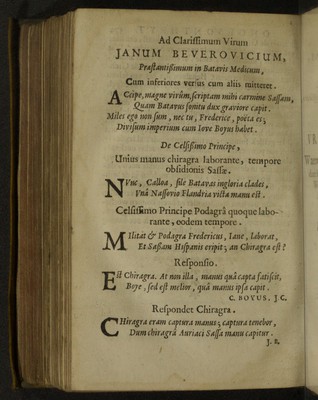 Ad Clarissimum Virum
JANUM BEVEROVICIUM,
Præstantissimum in Batavis Medicum,
Cum inferiores versus cum aliis mitteret.
ACcipe, magne virûm, scriptam mihi carmine Sassam,
Quam Batavus sonitu dux graviore capit.
Miles ego non sum, nec tu, Frederice, poëta es;
Divisum imperium cum Iove Boyus habet.
De Celsissimo Principe,
Unius manus chiragra laborante, tempore
obsidionis Sassæ.
NVnc, Calloa, sile Batavas ingloria clades,
Vnâ Nassovio Flandria victa manu est.
Celsissimo Principe Podagrâ quoque labo-
rante, eodem tempore.
MIlitat & Podagra Fredericus, laborat,
Et Sassam Hispanis eripit; an Chiragra est?
Responsio.
ESt Chiragra. At non illa, manus quâ capta fatiscit,
Boye, sed est melior, quâ manus ipsa capit.
C. BOYUS. J C.
Respondet Chiragra.
CHiragra eram captura manus; captura tenebor,
Dum chiragrâ Auriaci Sassa manu capitur.
J. B.